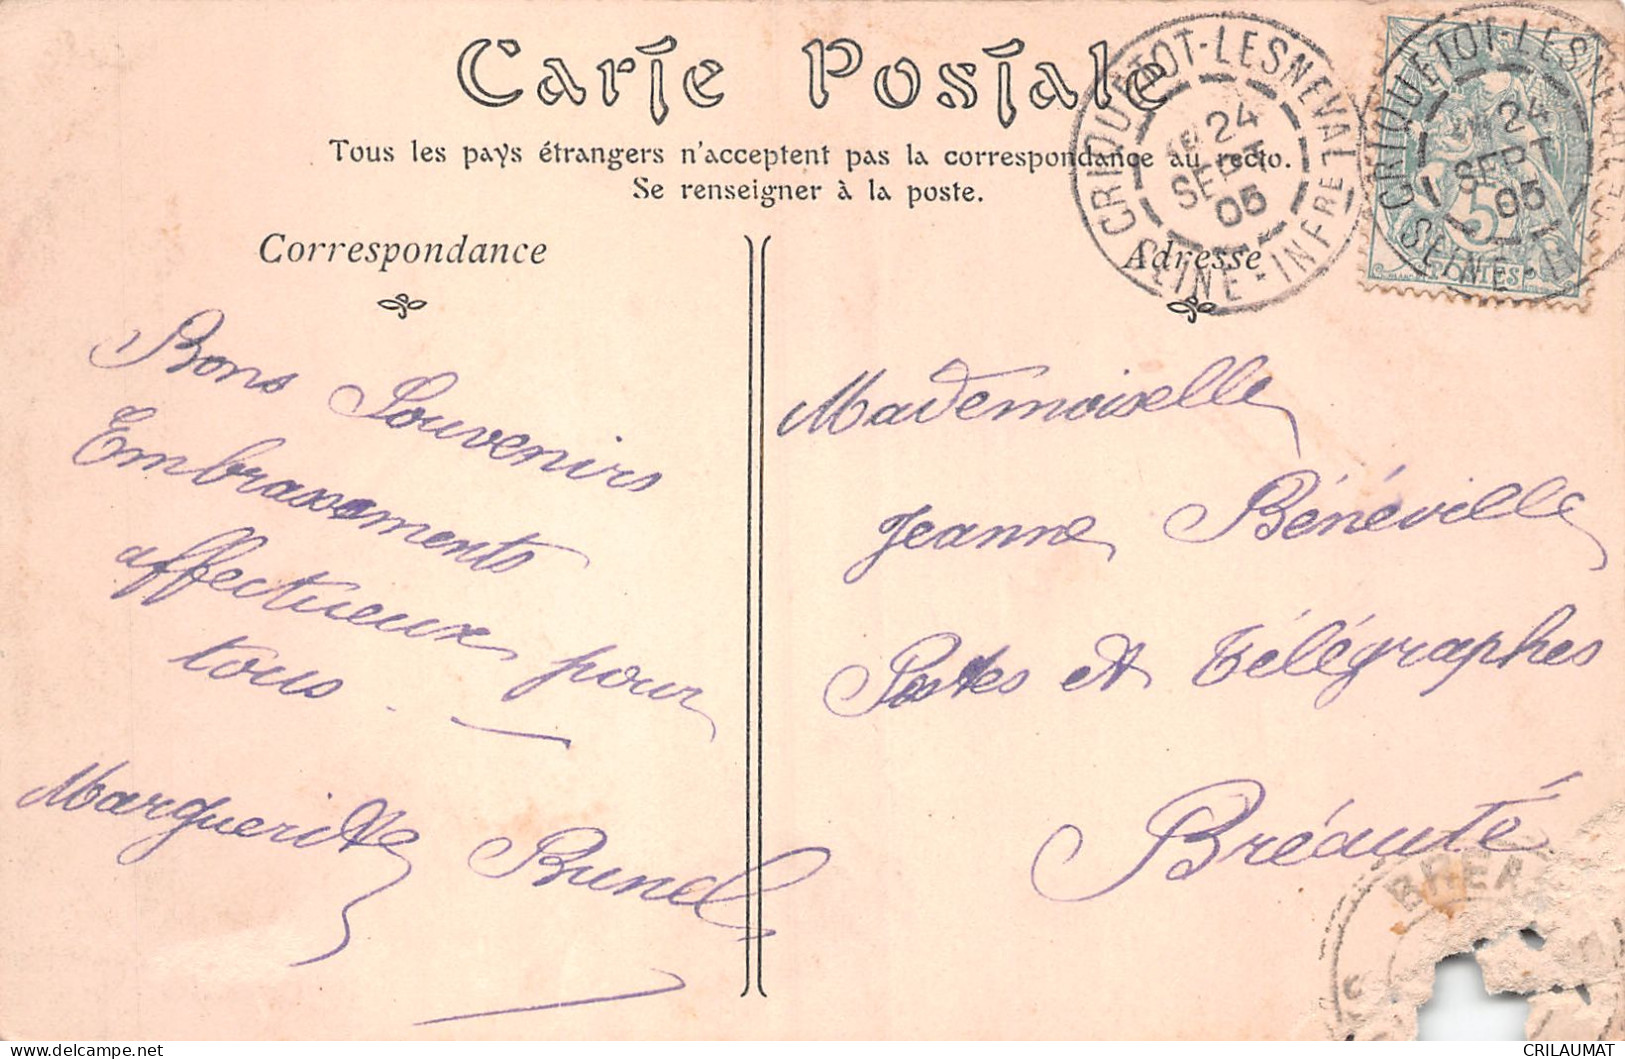 Carte Postale
Tous les pays étrangers n'acceptent pas la correspondance au recto.
Se renseigner à la poste.
CRIQUETOT-LESNEVAL
24
SEPT
05
SEINE-INFRE
CRIQUETOT-LESNEVAL
24
SEPT
05
SEINE-IN
5
Correspondance
Bons Souvenirs
Embrassements
affectueux pour
tous.
Marguerite Brunel
Adresse
Mademoiselle
Jeanne Bénéville
Postes et Télégraphes
Bréauté
BREA
CRILAUMAT